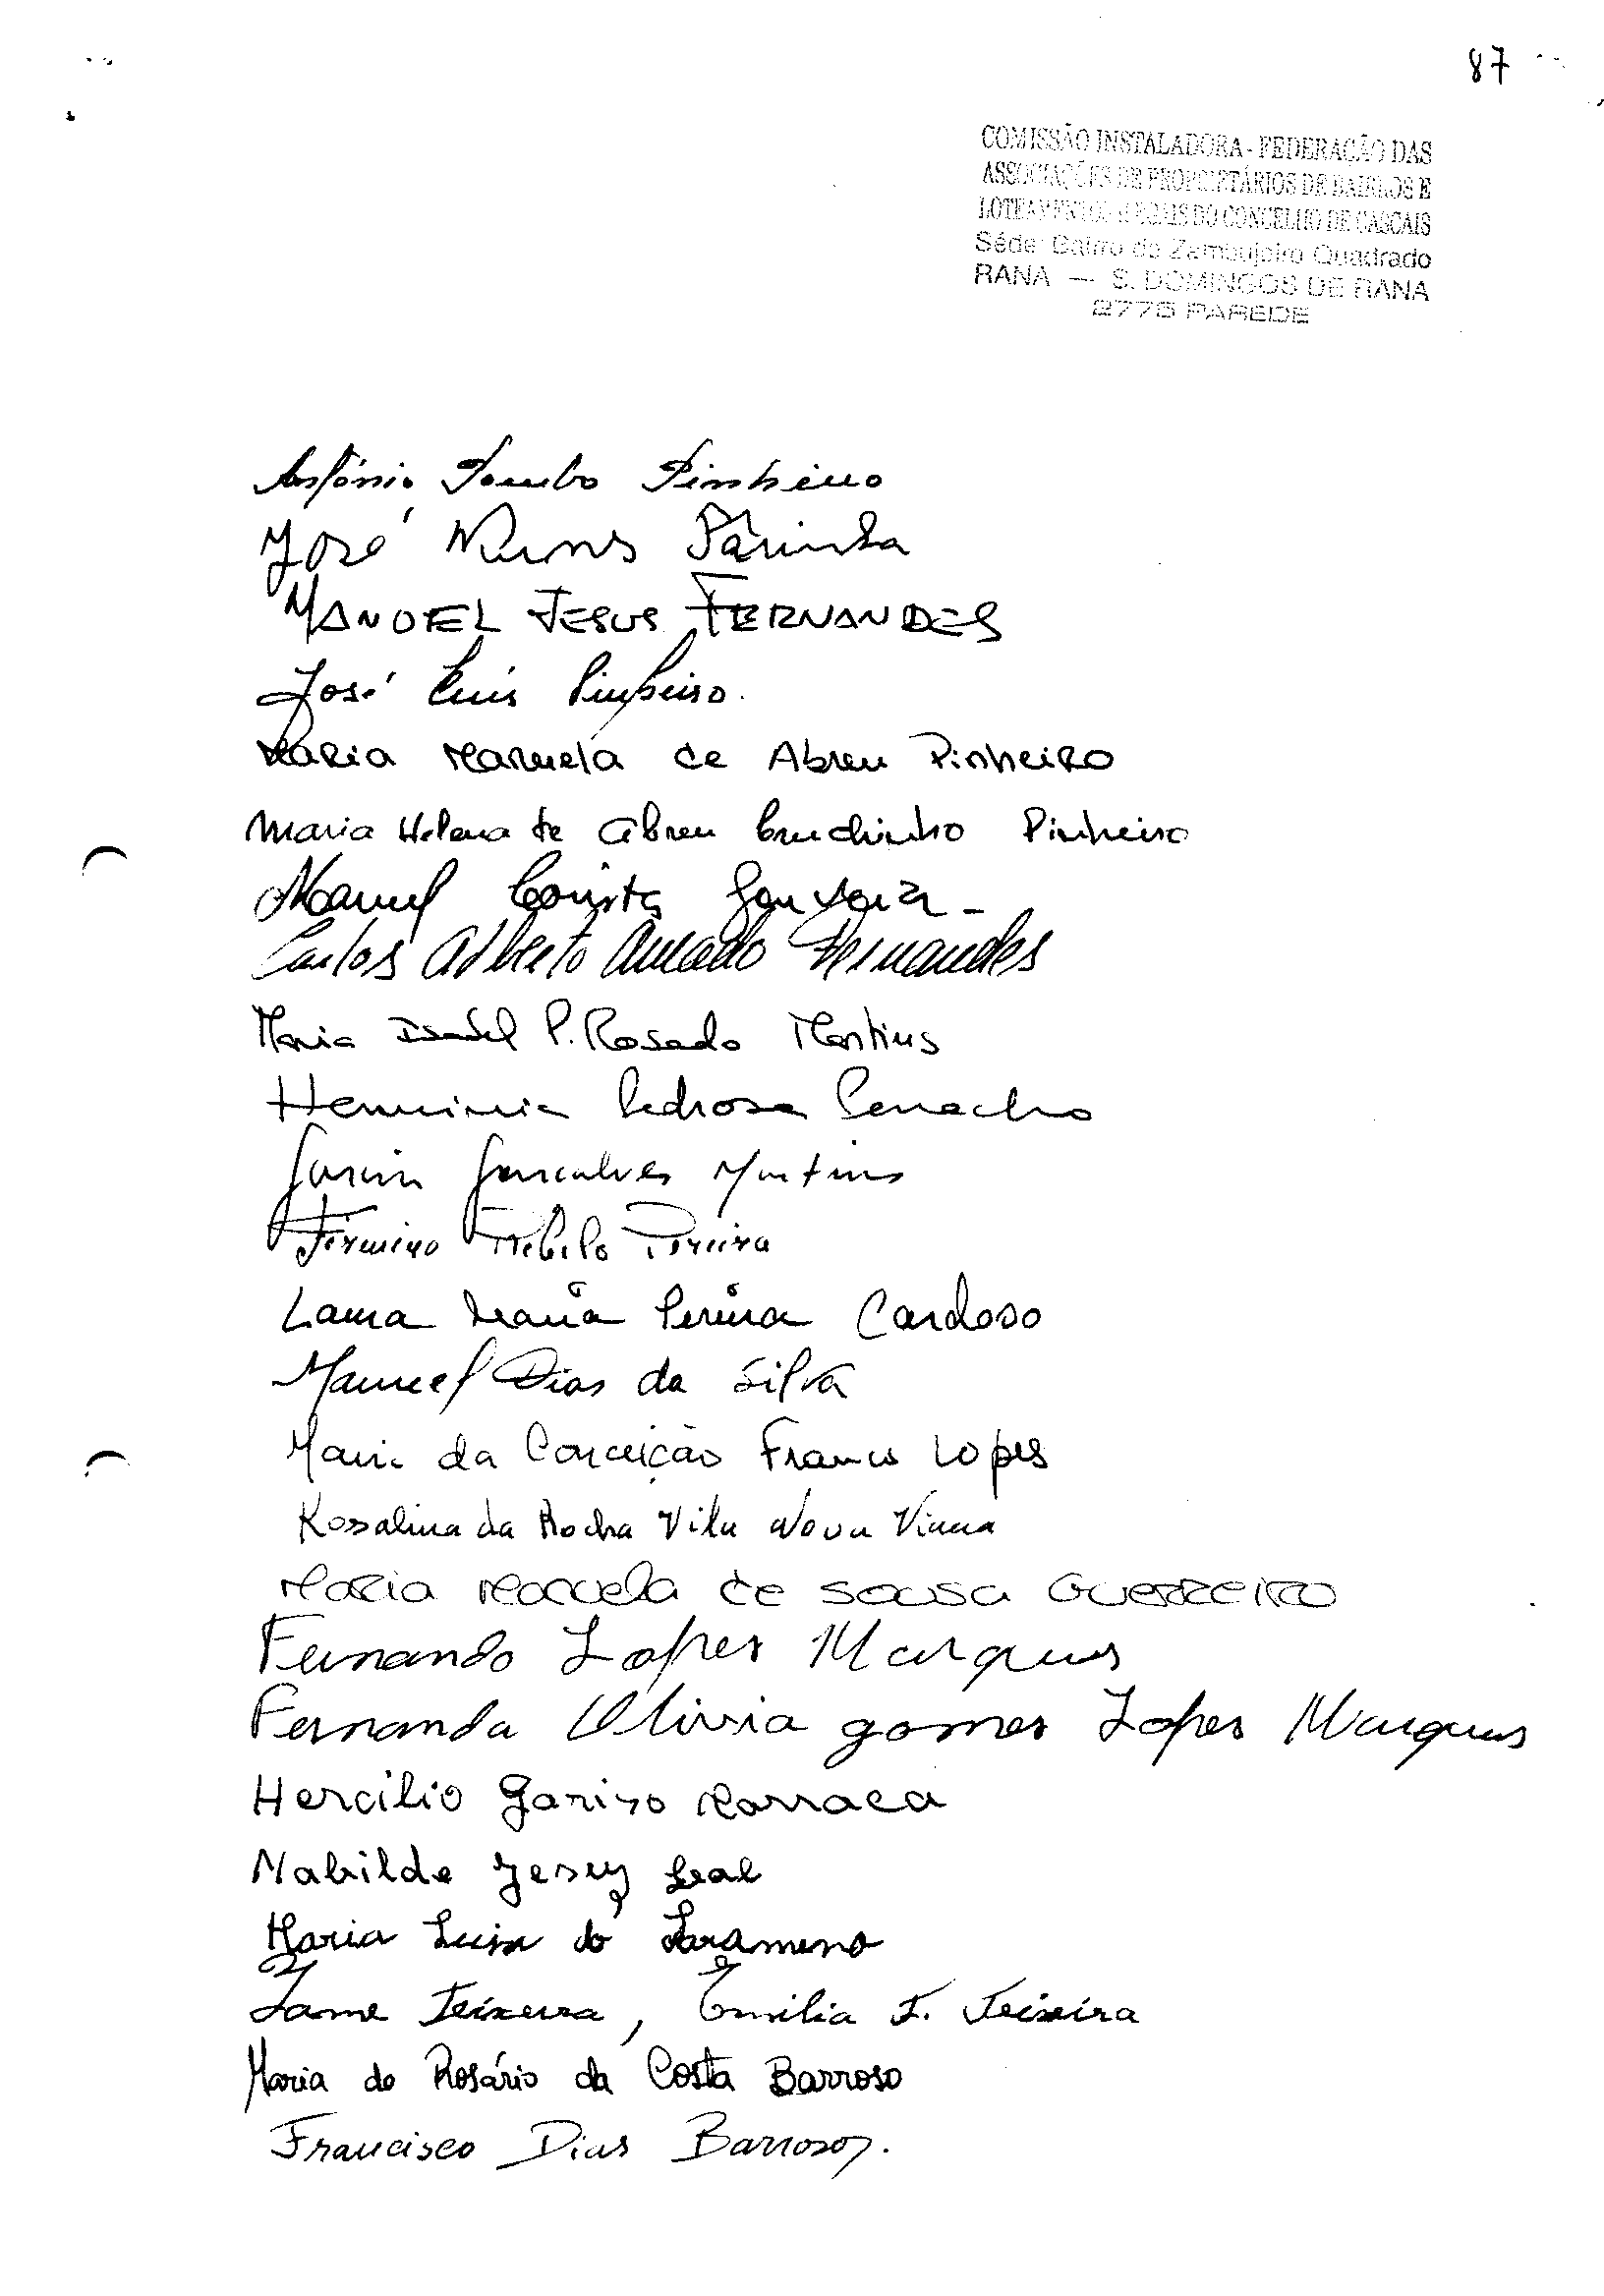 87
COMISSÃO INSTALADORA - FEDERAÇÃO DAS
ASSOCIAÇÕES DE PROPRIETÁRIOS DE BAIRROS E
LOTEAMENTOS ILEGAIS DO CONCELHO DE CASCAIS
Séde: Bairro do Zambujeiro Quadrado
RANA — S. DOMINGOS DE RANA
2775 PAREDE
António Pinheiro
José Nunes Farinha
MANUEL JESUS FERNANDES
José Luís Pinheiro.
Maria Manuela de Abreu Pinheiro
Maria Helena de Abreu Pinheiro
Manuel
Carlos Alberto Amado Fernandes
Maria Isabel P. Rosado Martins
Herminia Pedrosa
Gonçalves Martins
Firmino Pereira
Laura Maria Pereira Cardoso
Manuel Dias da Silva
Maria da Conceição Franco Lopes
Rosalina da Rocha Vila Nova Viana
Maria Manuela de Sousa Guerreiro
Fernando Lopes Marques
Fernanda Olivia gomes Lopes Marques
Hercílio
Jesus Leal
Maria Luisa do
Jame Teixeira, Emilia F. Teixeira
Maria do Rosário da Costa Barroso
Francisco Dias Barroso.